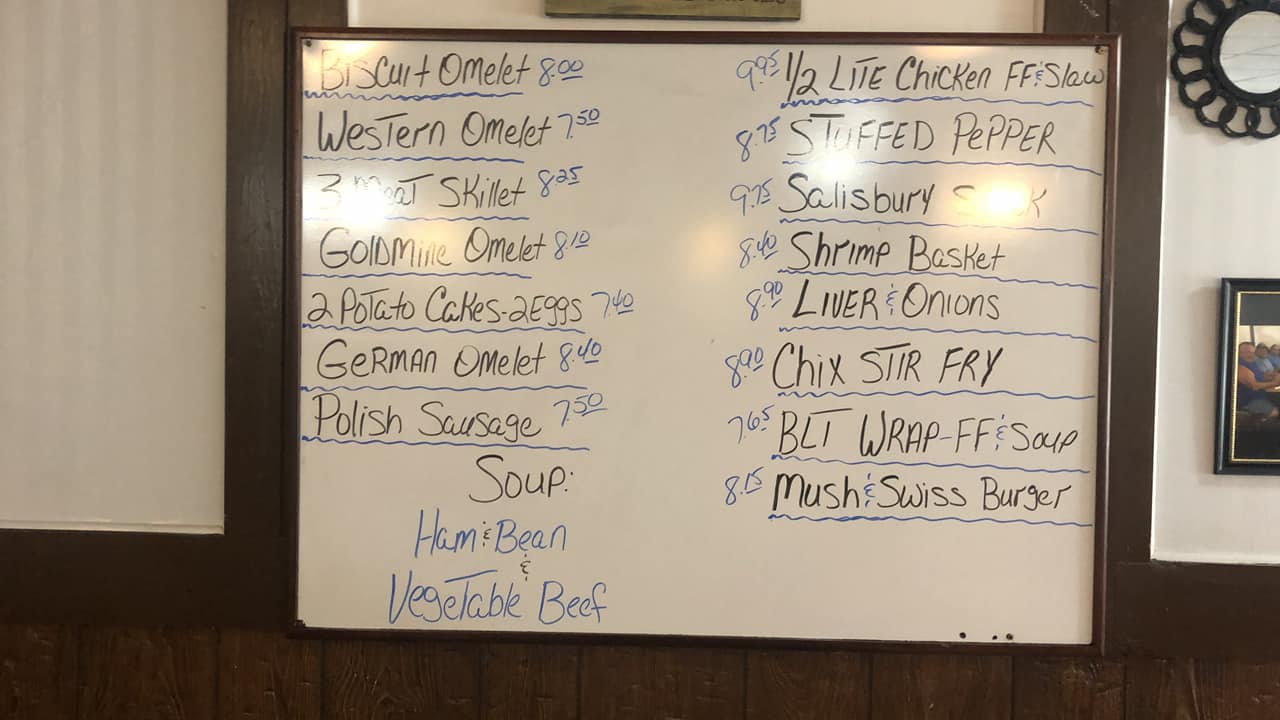 Biscuit Omelet 8.00
Western Omelet 7.50
3 Meat Skillet 8.25
Goldmine Omelet 8.10
2 Potato Cakes-2Eggs 7.40
German Omelet 8.40
Polish Sausage 7.50
Soup:
Ham & Bean
&
Vegetable Beef
9.95 1/2 LITE Chicken FF & Slaw
8.75 STUFFED PEPPER
9.75 Salisbury
8.40 Shrimp Basket
8.90 LIVER & Onions
8.90 Chix STIR FRY
7.65 BLT WRAP-FF & Soup
8.15 Mush & Swiss Burger